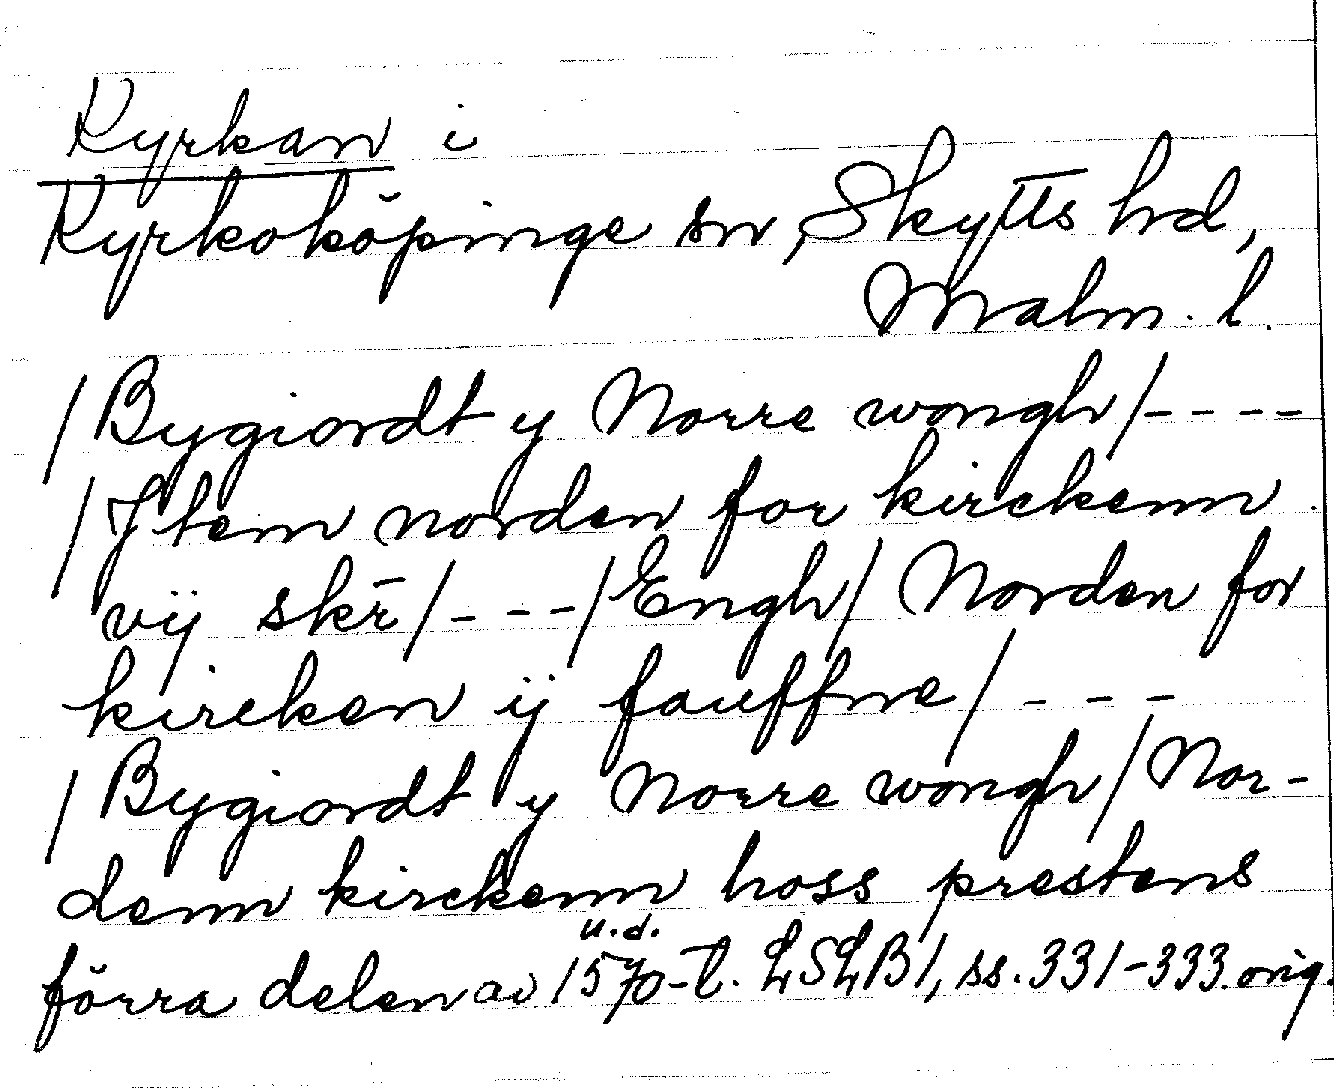 Kyrkan i
Kyrkoköpinge sn, Skytts hd,
Malm. l.
/Bygiordt y Norre wongh/----
/Jtem norden for kirckenn
vij skē/---/Engh/Norden for
kircken ij fauffne/---
/Bygiordt y Norre wongh/Nor-
denn kirckenn hoss prestens
u.d.
förra delen av 1570-t. LSLB1, ss. 331-333. orig.